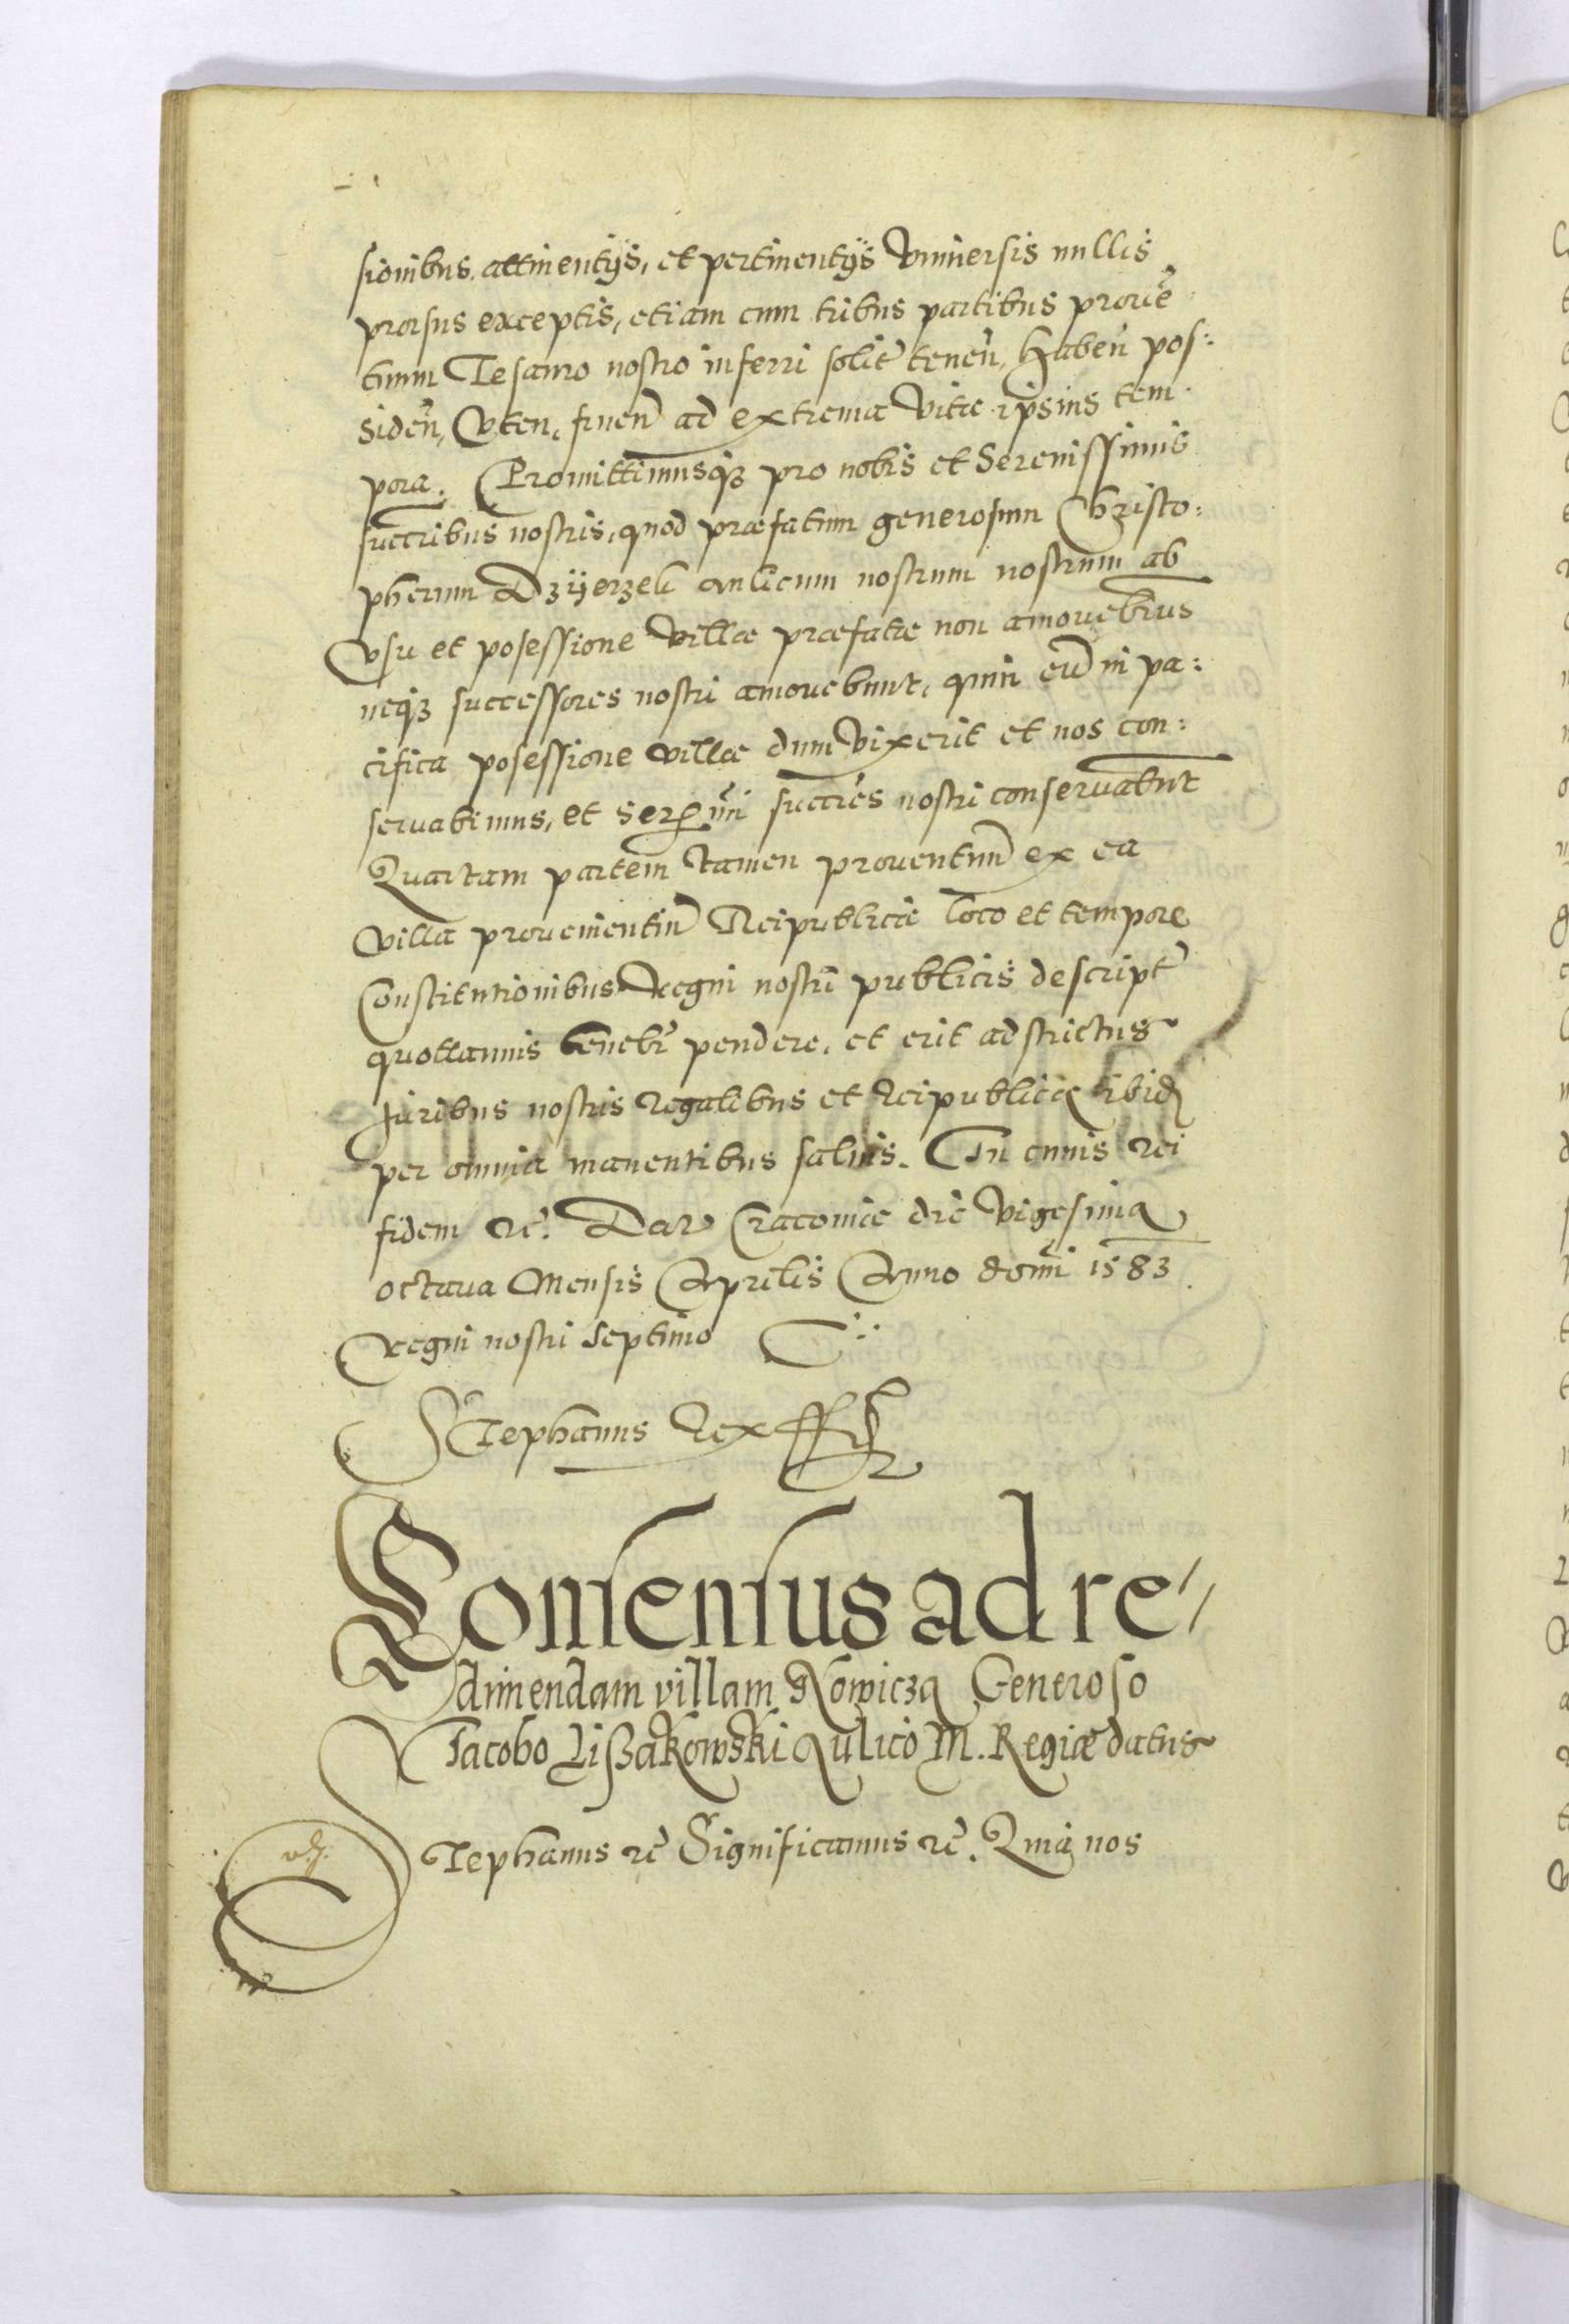 sionibus, attinentÿs, et pertinentÿs Vniuersis nullis
prorsus exceptis, etiam cum tribus partibus proue
tuum Tesauro nostro inferri solit teneñ, Habeñ pos:
sideñ, Vten, fruen ad extrema Vitæ ipsius tem
pora. Promittimusq3 pro nobis et Serenissimis
succribus nostris, quod præfatum generosum Christo:
pherum Dzÿerzek aulicum nostrum nostrum ab
Vsu et posessione Villæ præfatæ non amouebimus
neq3 successores nostri amouebunt, quin eud in pa:
cifica posessione villæ dum Vixerit et nos con:
seruabimus, et Sermi succres nostri conseruabunt
Quartam partem tamen prouentuum ex ea
Villa prouenientium Reipublicæ loco et tempore
Constitutionibus Regni nostri publicis descript
quottannis tenebr pendere, et erit adstrictus
Juribus nostris Regalibus et Reipublicæ ibid
per omnia manentibus saluis. In cuius rei
fidem etc. Dat Cracouiæ die Vigesima
octaua Mensis Aprilis Anno domi 1583
Regni nostri septimo
Stephanus Rex
Consensus ad re
dimendam villam Nowicza Generoso
Jacobo Lißakowski Aulico M. Regiæ datus
Stephanus etc Significamus etc. Quia nos